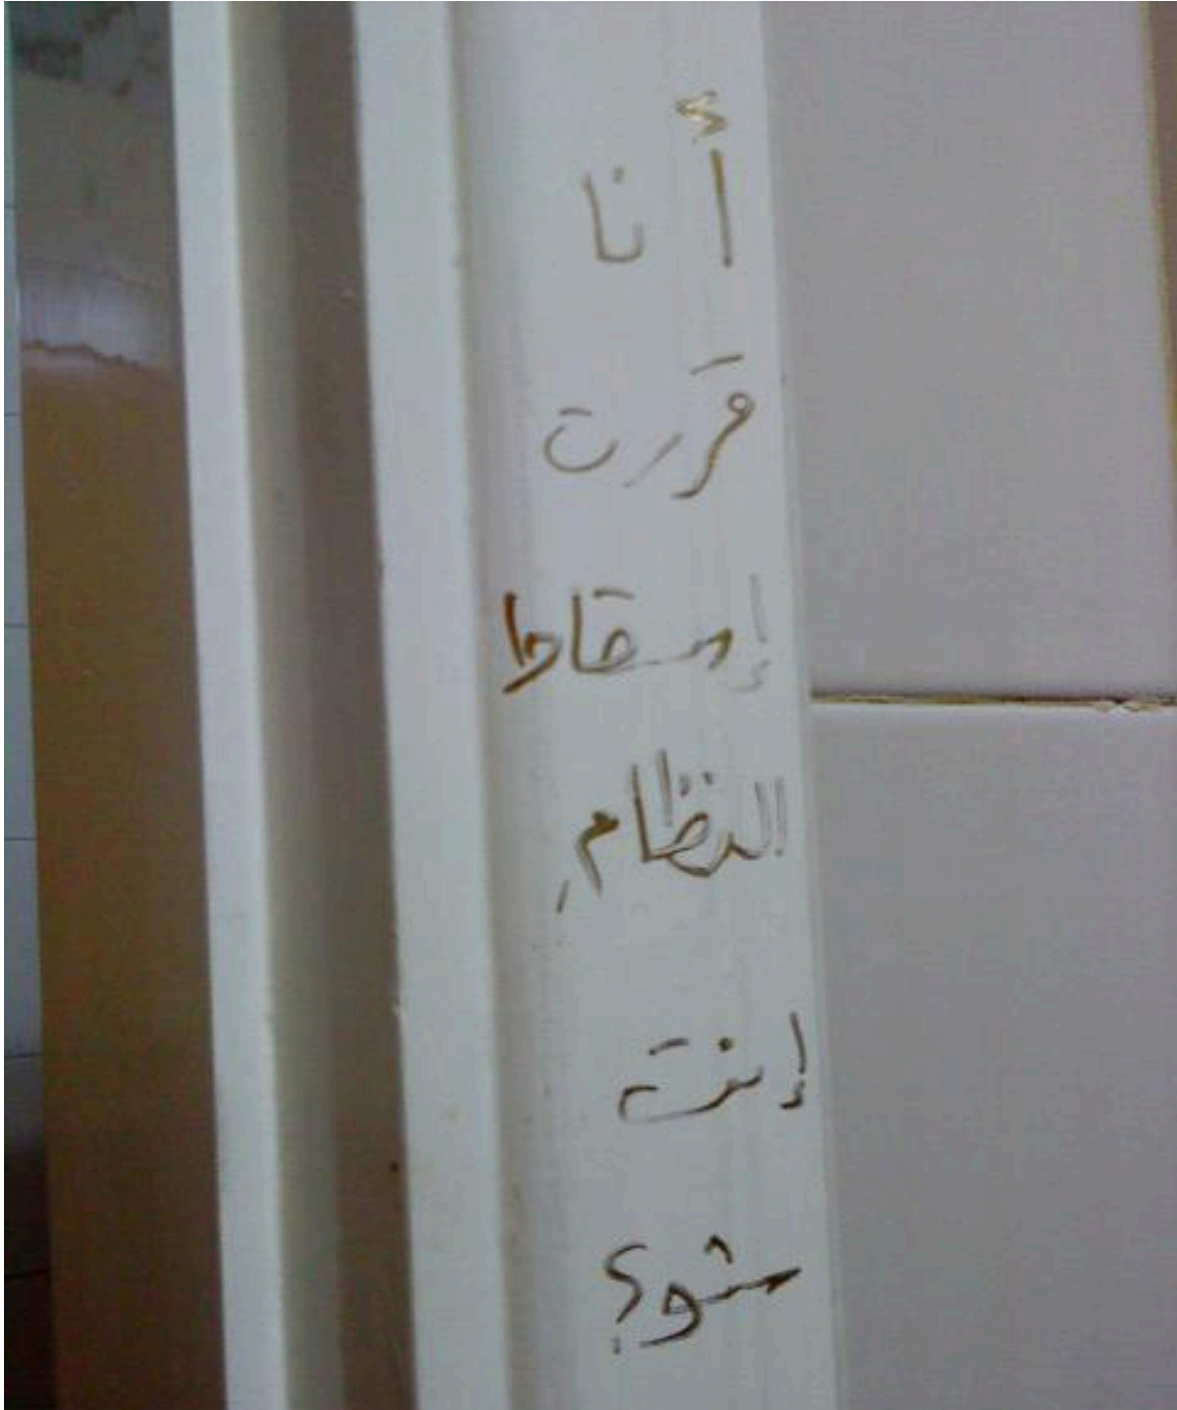 أنا
قررت
إسقاط
النظام
إنت
شو؟